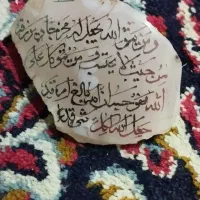 ومن يتق الله يجعل له مخرجا ويرزقه
من حيث لا يحتسب ومن يتوكل على
الله فهو حسبه ان الله بالغ امره قد
جعل الله لكل شيء قدرا